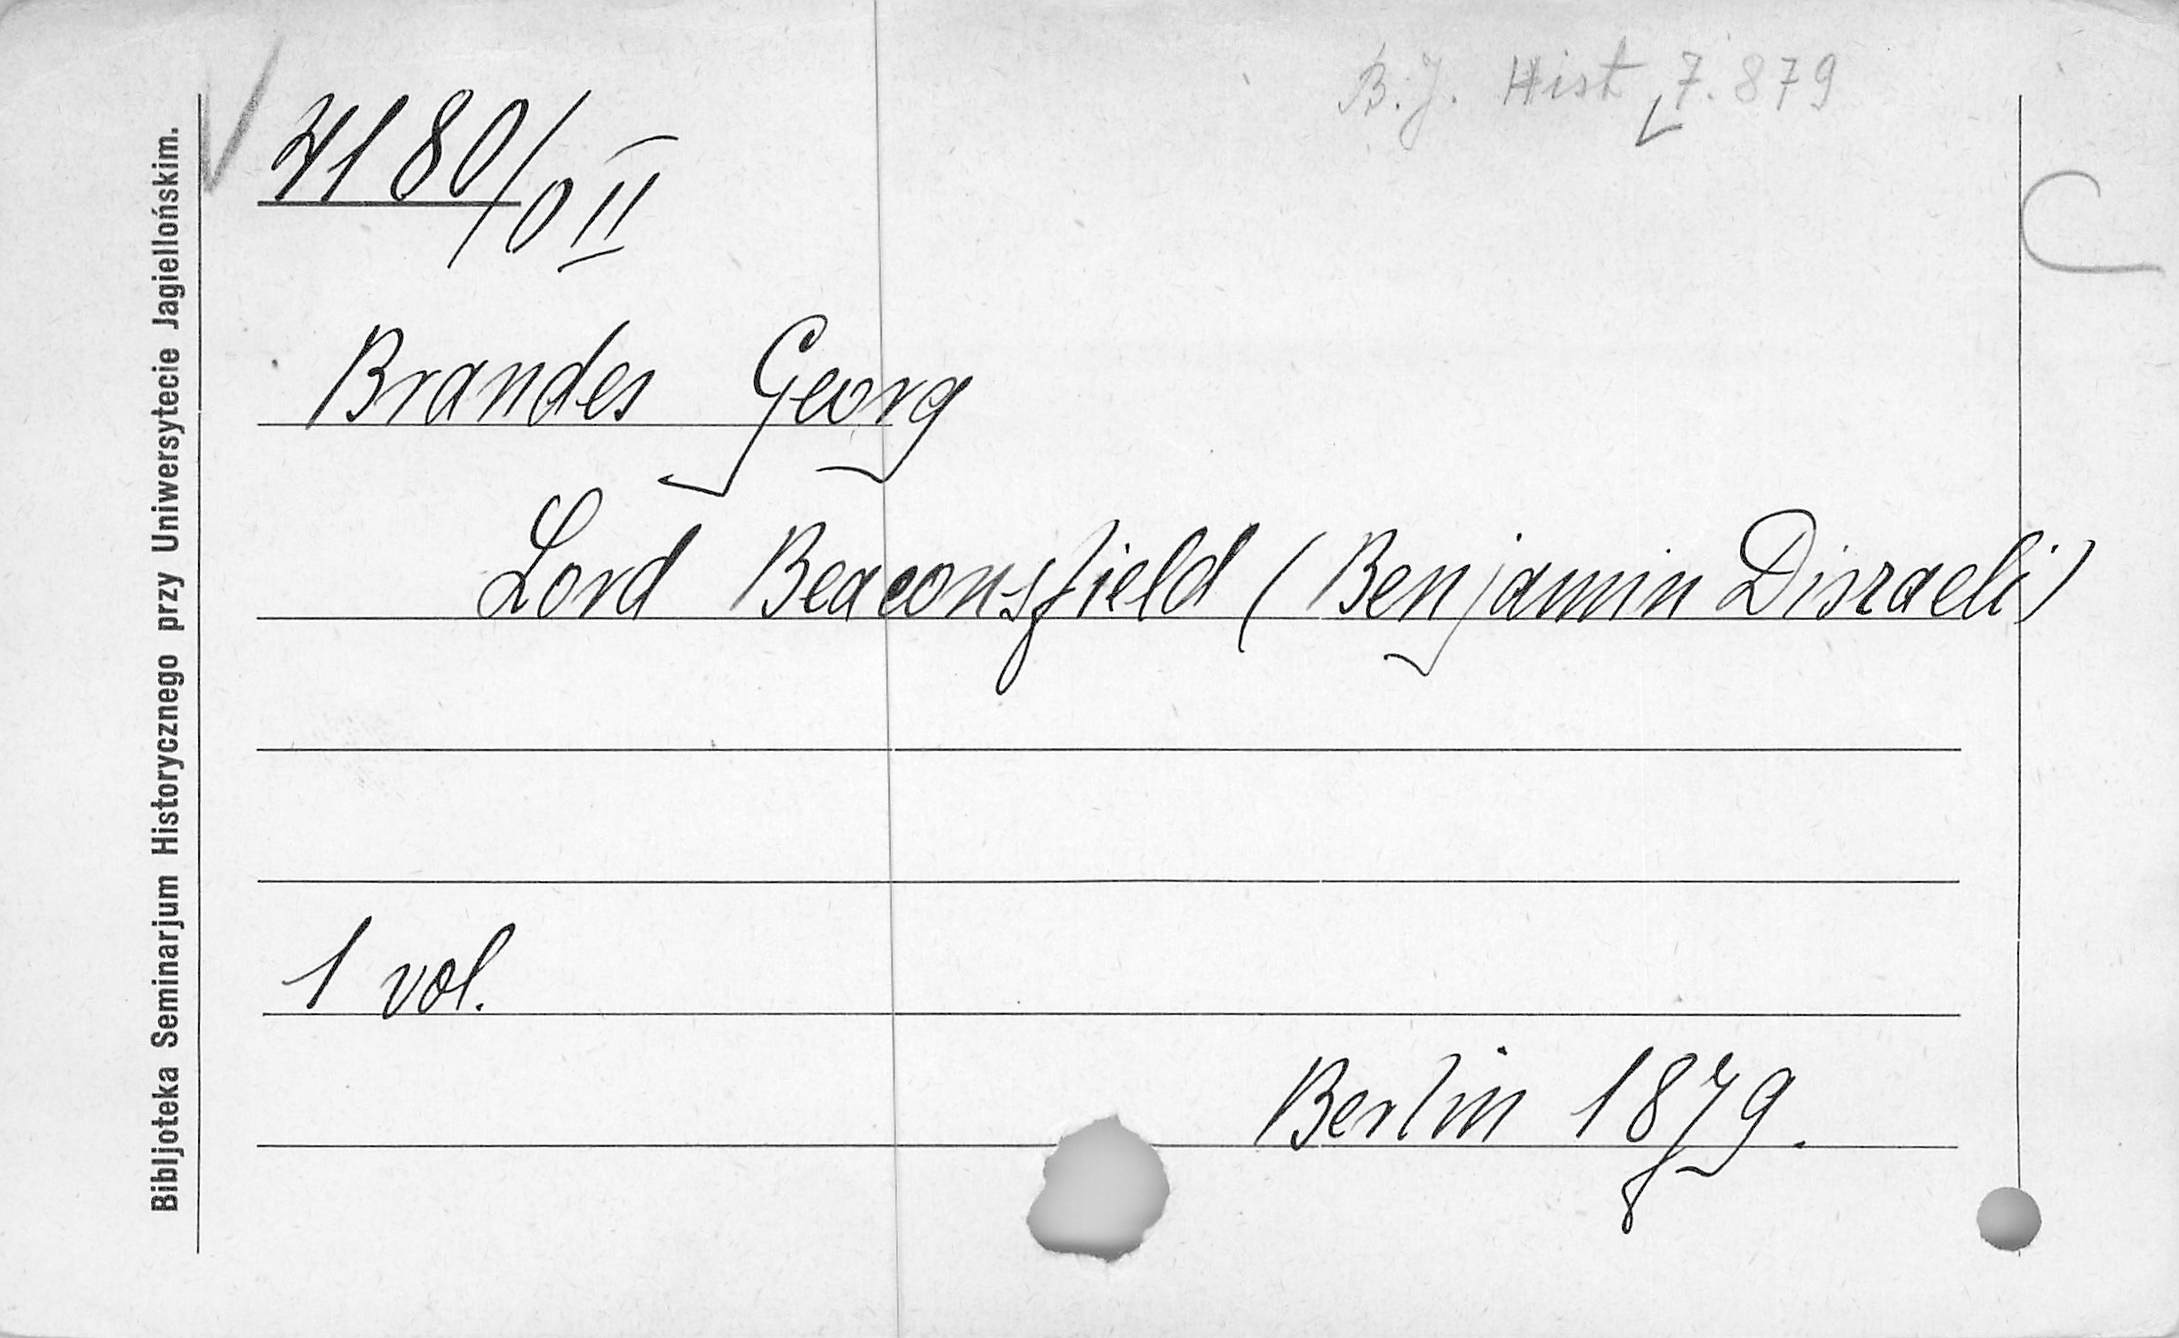 B.J. Hist 7.879
4180/0 II
Brandes Georg
Lord Beaconsfield (Benjamin Disraeli)
1 vol.
Berlin 1879.
Bibljoteka Seminarjum Historycznego przy Uniwersytecie Jagiellońskim.